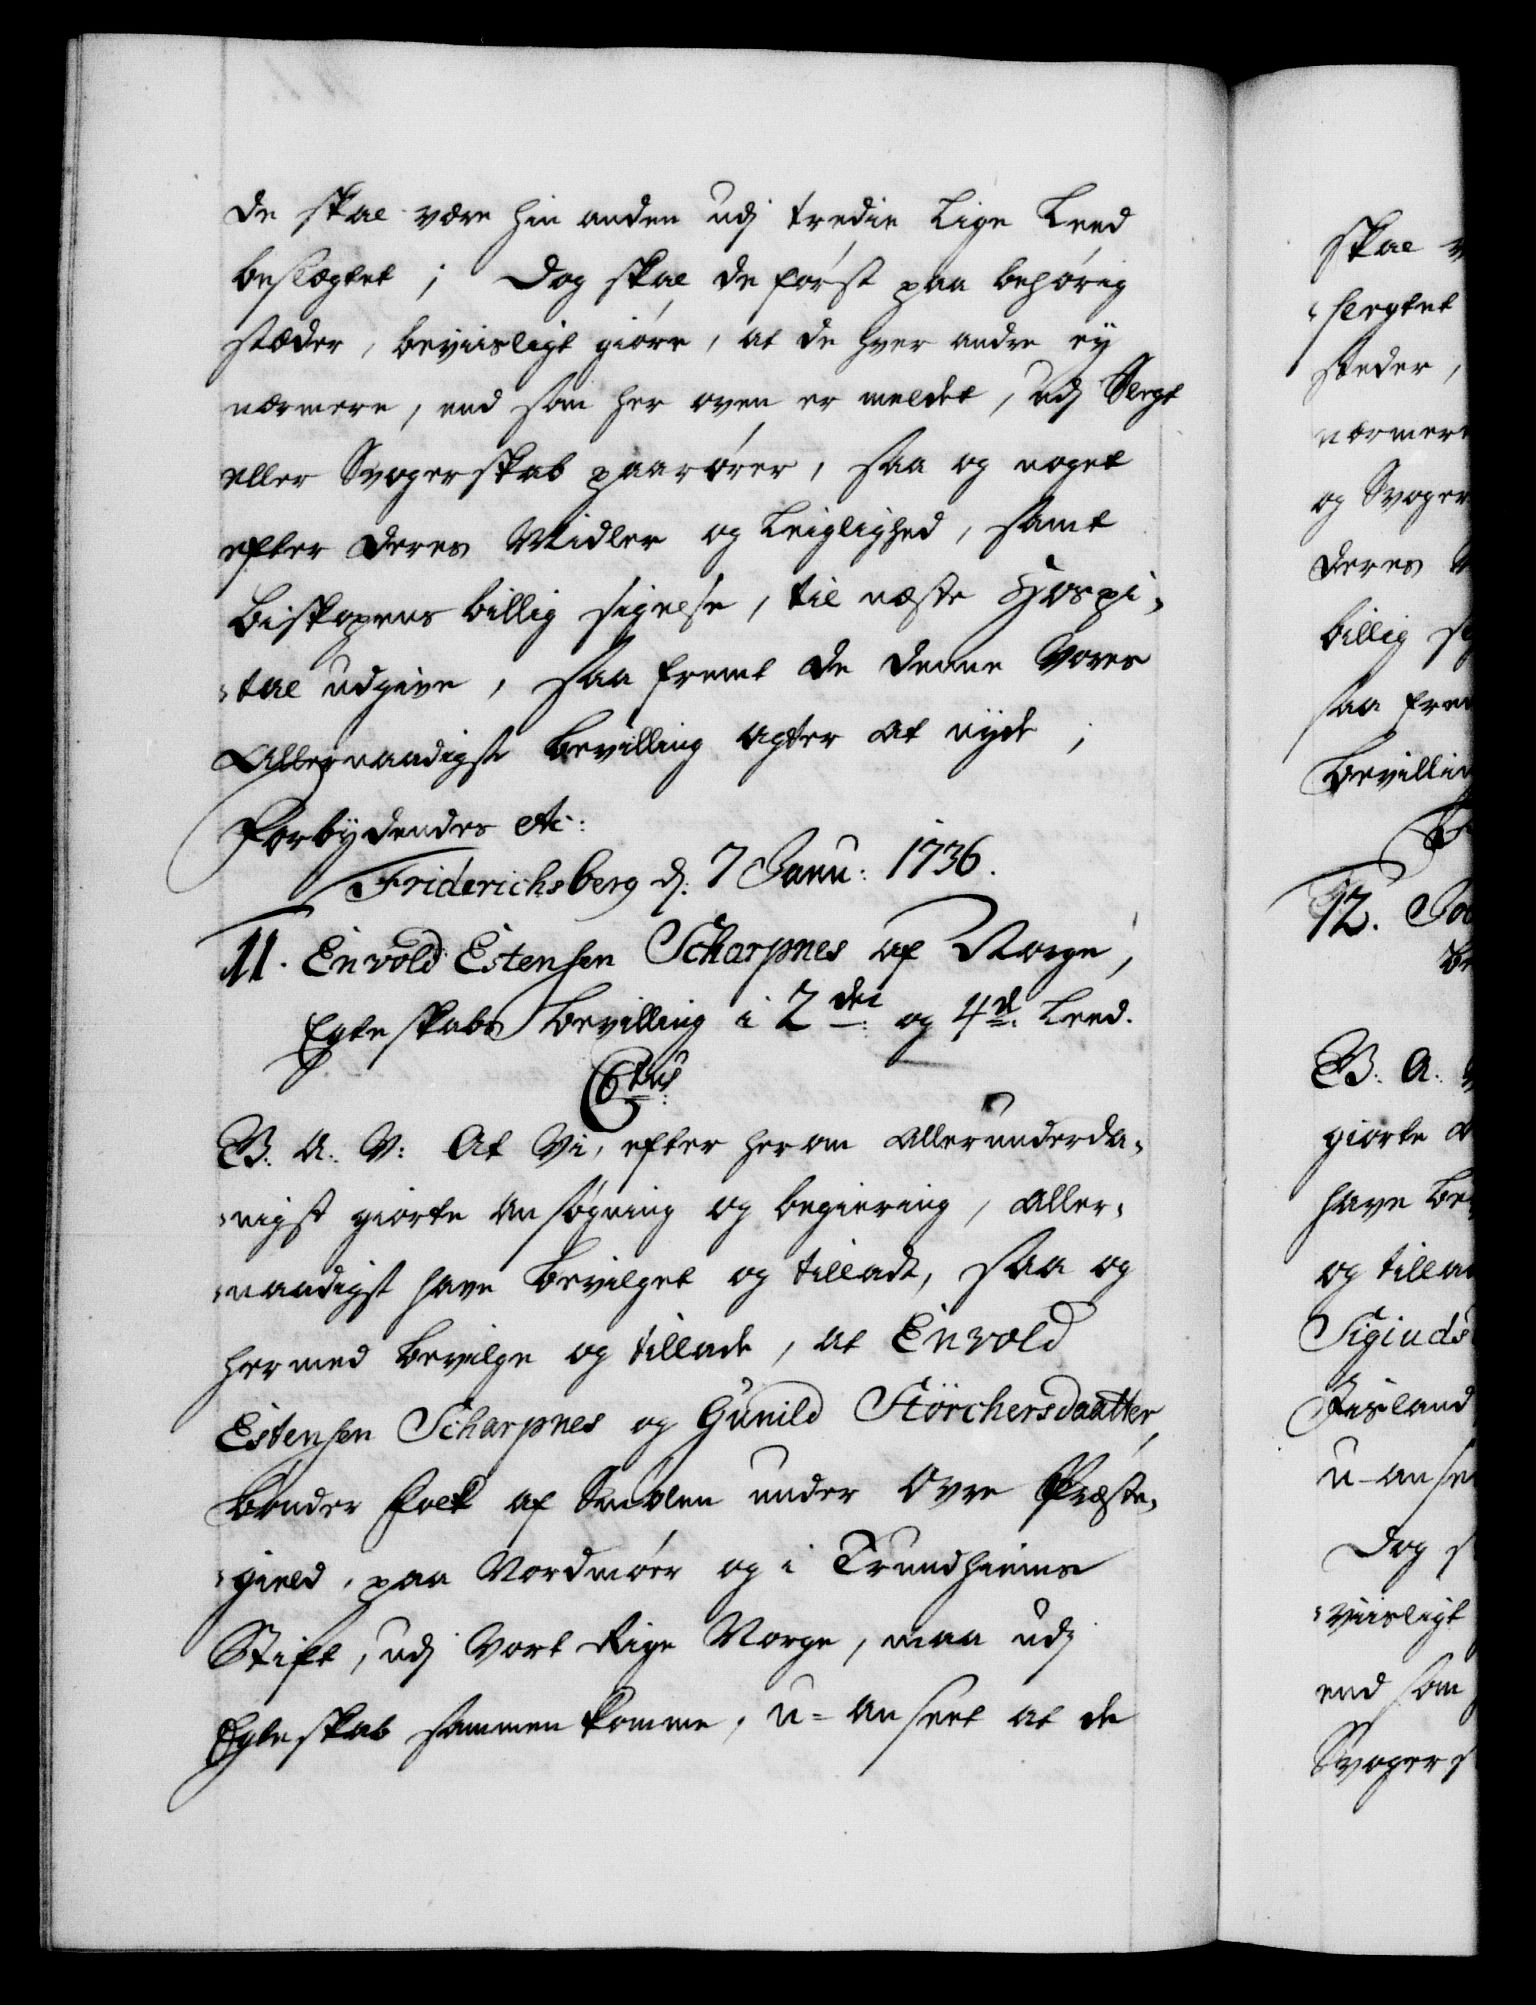 de skal være hin anden udj tredie Lige Leed
beslægtet; Dog skal de først paa behørig
stæder, beviisligt giøre, at de hver andre ey
nærmere, end som her oven er meldet, udj Slegt
eller Svogerskab paarører, saa og noget
efter deres Midler og Leiglighed, samt
Biskopens billig sigelse, til næste Hospi¬
tal udgive, saa fremt de denne Vores
Allernaadigste Bevilling agter at nyde;
Forbydendes etc:
Friderichsberg d: 7 Janu: 1736.
11. Envold Estensen Scharpnes af Norge,
Egteskabs Bevilling i 2den: og 4de: Leed.
Ctus:
B: A: V: At Vi, efter herom allerunderda¬
nigst giorte Ansøgning og begiering, aller¬
naadigst have bevilget og tilladt, saa og
hermed bevilge og tillade, at Envold
Estensen Scharpnes og Gunild Störchersdaatter,
bønder folk af Smölen under Øvre Præste¬
gield, paa Nordmøer og i Trundhiems
Stift, udj Vort Rige Norge, maa udj
Egteskab sammen komme, u-anseet at de
skal
slegtet
steder,
nærmere
og Svoger
deres
billig
saa frem
Bevilling
12.
B: A:
giorte
have be
og tillad
Sigiuds
Iisland
u-ansee
Dog s
viisligt
end som
Svogers